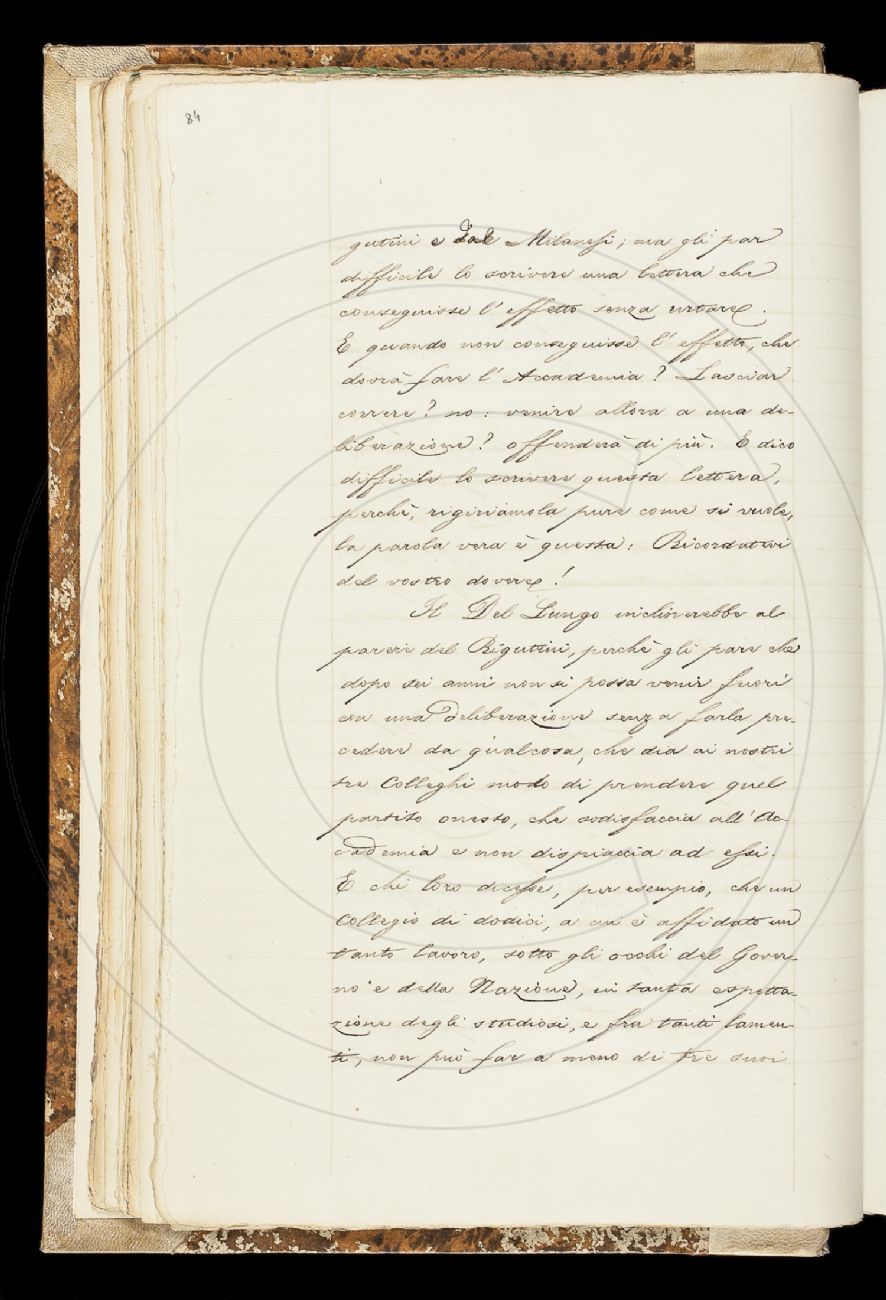 84
gutini e dal Milanesi; ma gli par
difficile lo scrivere una lettera che
conseguisse l'effetto senza urtare.
E quando non conseguisse l'effetto, che
dovrà fare l'Accademia? Lasciar
correre? no: venire allora a una de-
liberazione? offenderà di più. E dico
difficile lo scrivere questa lettera,
perchè, rigiriàmola pure come si vuole,
la parola vera è questa: Ricordatevi
del vostro dovere!
Il Del Lungo inclinerebbe al
parere del Rigutini, perchè gli pare che
dopo sei anni non si possa venir fuori
con una deliberazione senza farla pre-
cedere da qualcosa, che dia ai nostri
tre Colleghi modo di prendere quel
partito onesto, che sodisfaccia all'Ac-
cademia e non dispiaccia ad essi.
E chi loro dicesse, per esempio, che un
Collegio di dodici, a cui è affidato un
tanto lavoro, sotto gli occhi del Gover-
no e della Nazione, in tanta espetta-
zione degli studiosi, e fra tanti lamen-
ti, non può far a meno di tre suoi